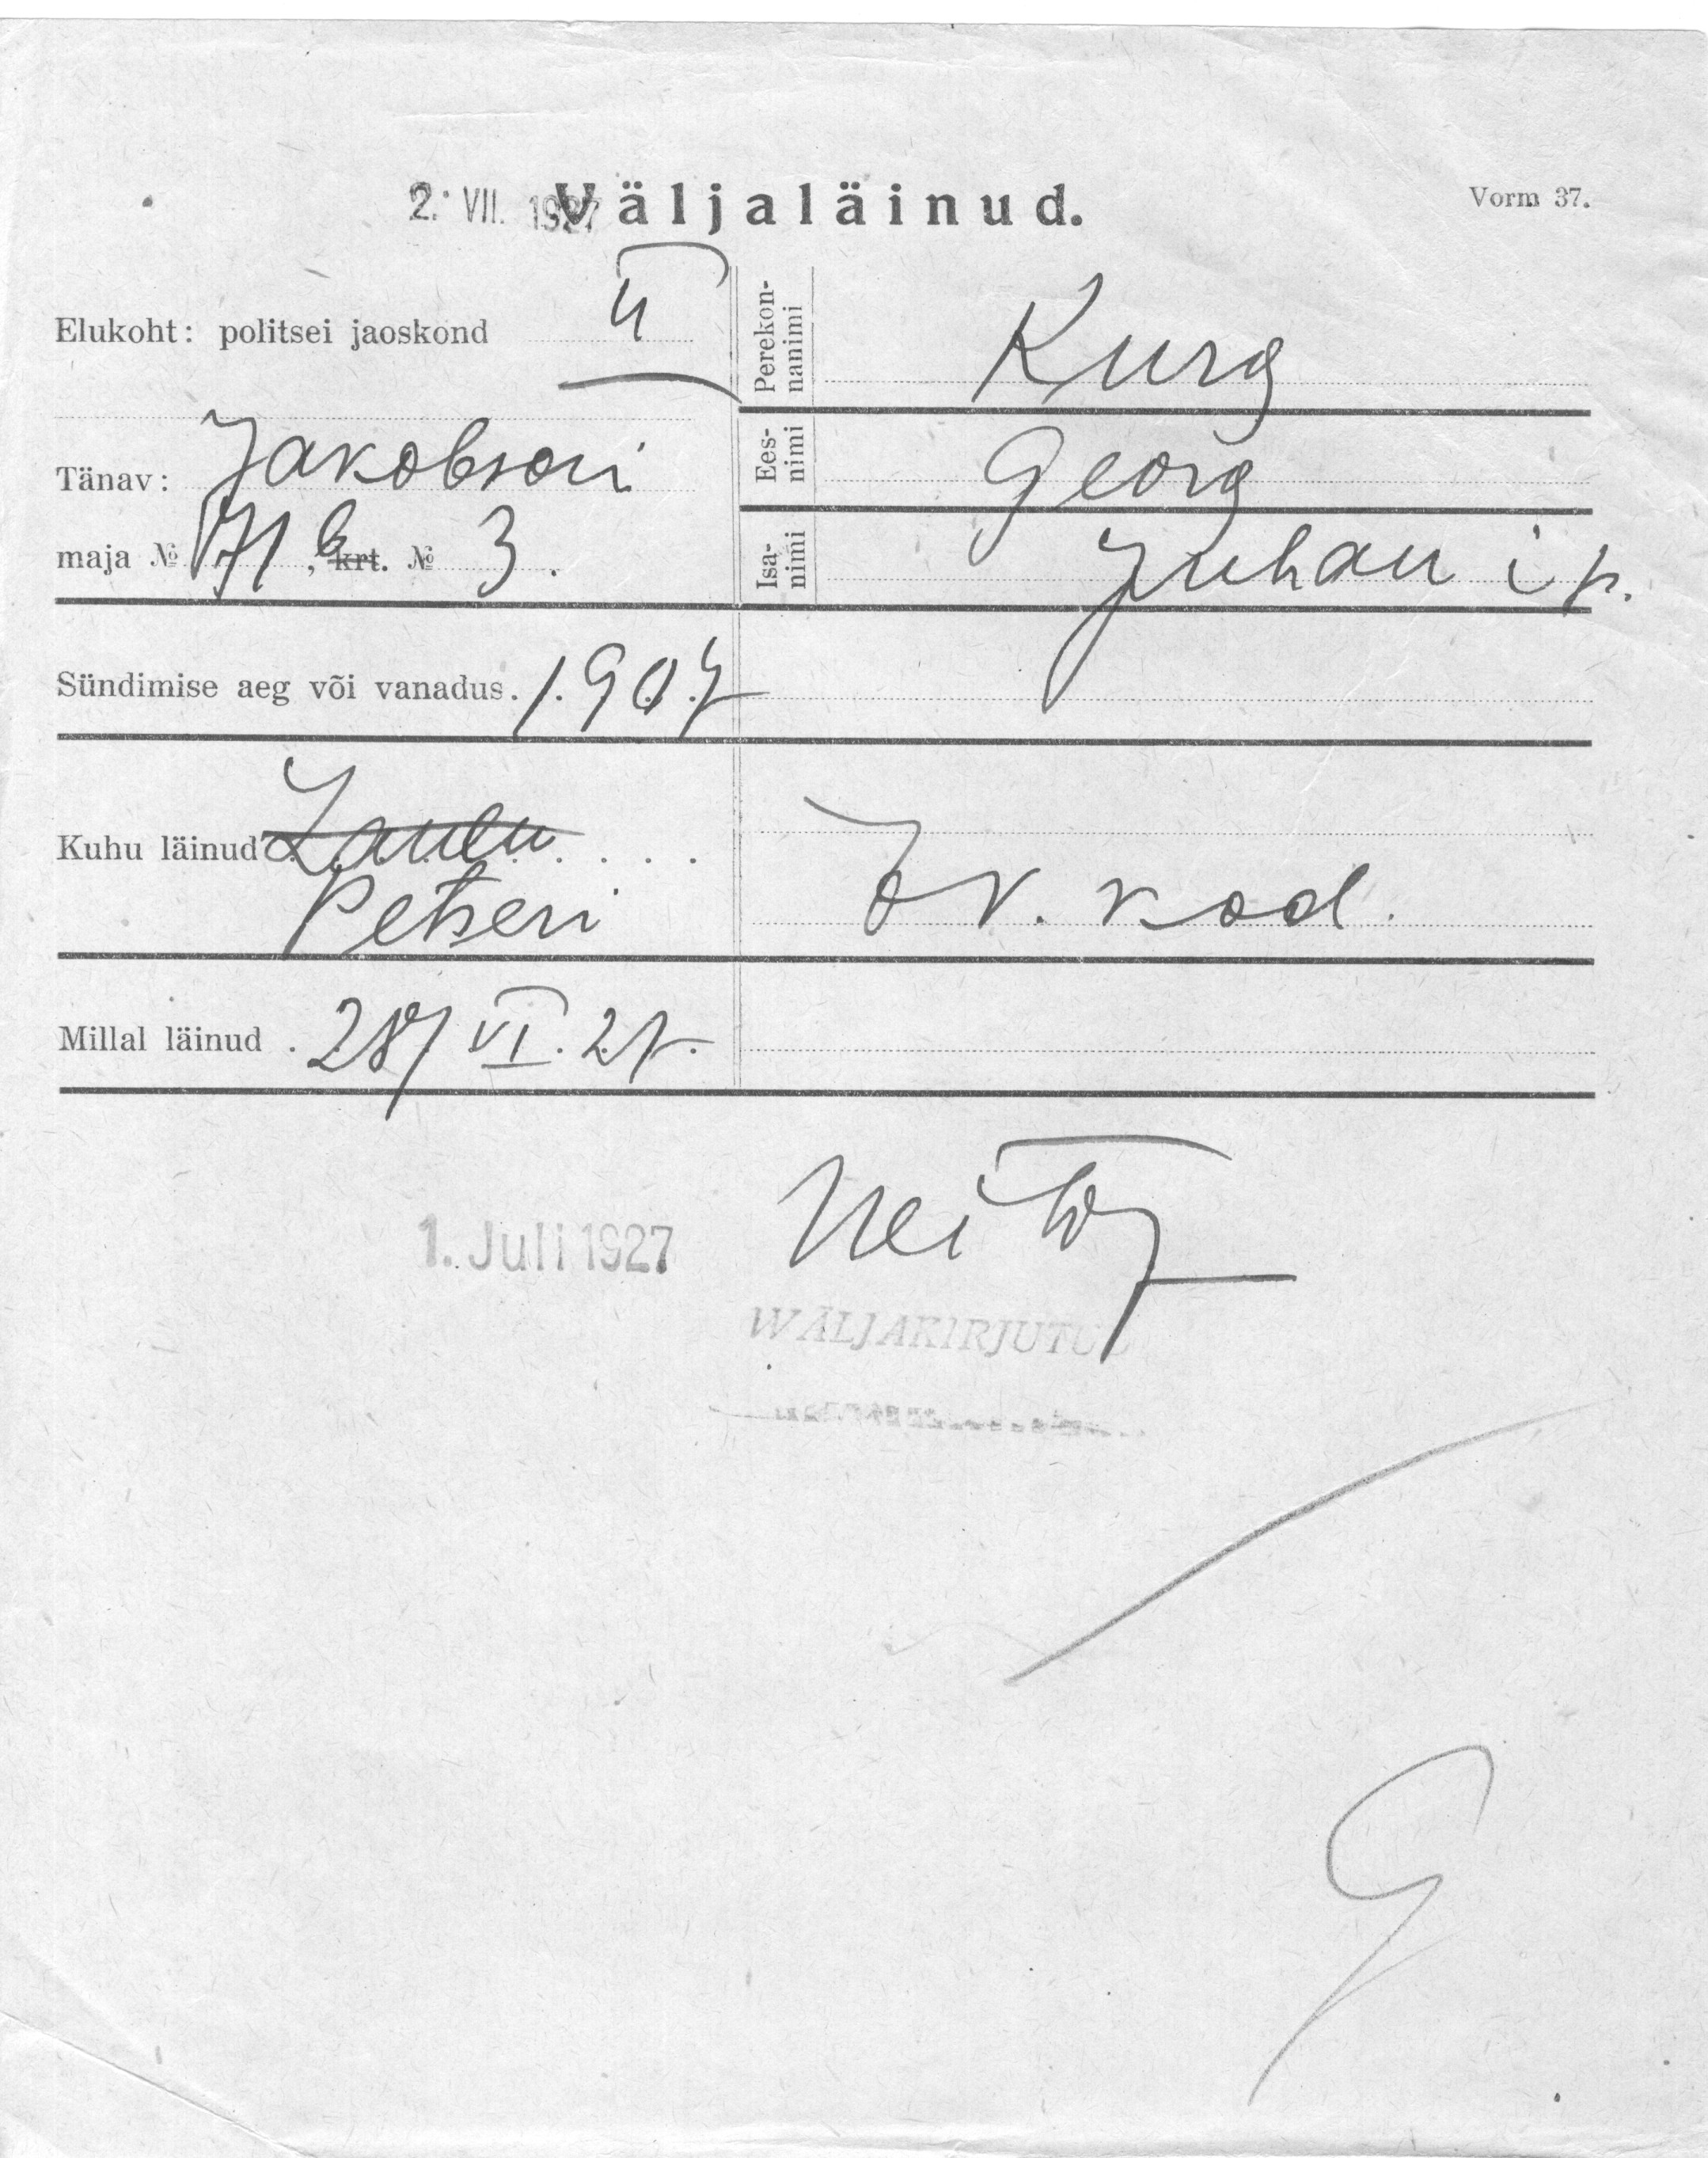 2. VII. 1927 Väljaläinud.
Vorm 37.
Elukoht: politsei jaoskond II
Perekonnanimi Kurg
Tänav: Jakobsoni
Eesnimi Georg
maja № 71 b, krt. № 3.
Isanimi Juhan i p.
Sündimise aeg või vanadus. 1907
Kuhu läinud
Petseri
kod.
Millal läinud . 28/VI. 27.
1. Juli 1927
WÄLJAKIRJUTUD